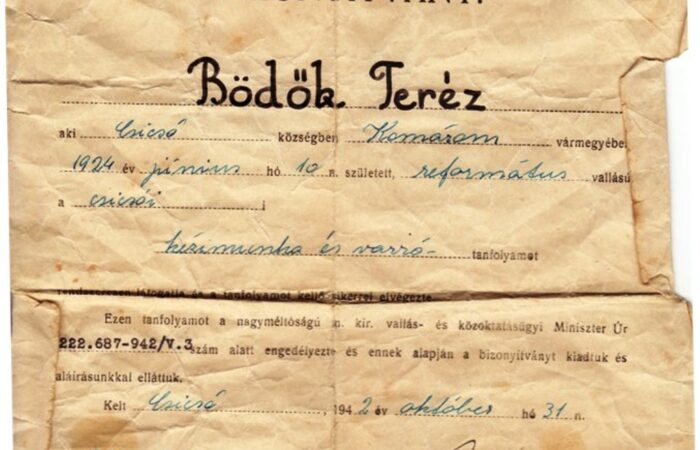 Bödők Teréz
aki Csicsó községben Komárom vármegyében
1924 év június hó 10 n. született, református vallású
a csicsói
kézimunka és varró- tanfolyamot
rendszeresen látogatta és a tanfolyamot kellő sikerrel elvégezte.
Ezen tanfolyamot a nagyméltóságú m. kir. vallás- és közoktatásügyi Miniszter Úr
222.687-942/V.3 szám alatt engedélyezte és ennek alapján a bizonyítványt kiadtuk és
aláírásunkkal elláttuk.
Kelt Csicsó, 1942 év október hó 31 n.